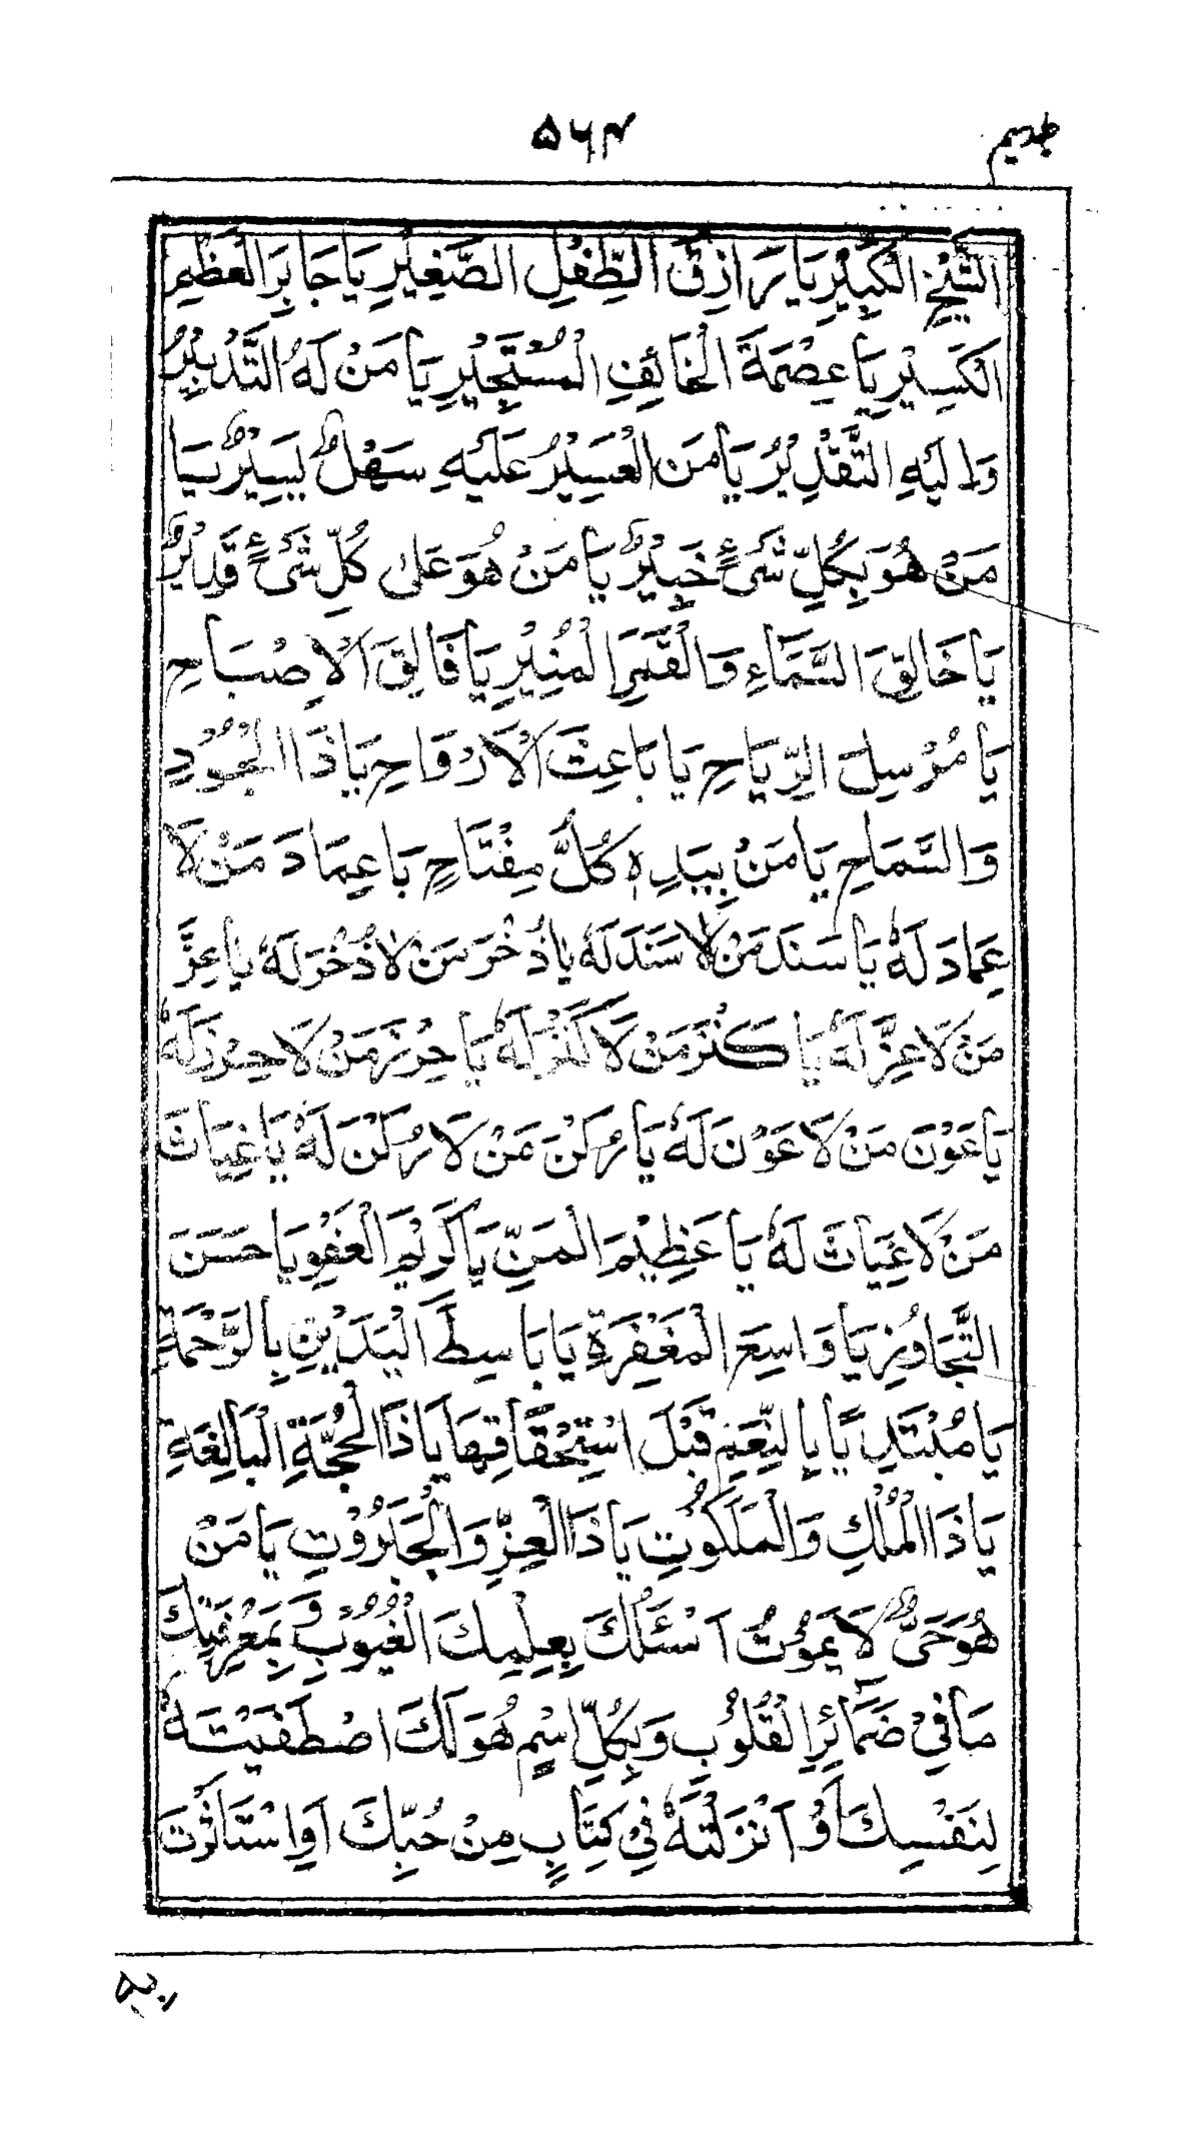 ۵۶۴
الشَّيْخِ الْكَبِيْرِ يَا رَازِقَ الطِّفْلِ الصَّغِيْرِ يَا جَابِرَ الْعَظْمِ
الْكَسِيْرِ يَا عِصْمَةَ الْخَائِفِ الْمُسْتَجِيْرِ يَا مَنْ لَهُ التَّدْبِيْرُ
وَاِلَيْهِ التَّقْدِيْرُ يَا مَنِ الْعَسِيْرُ عَلَيْهِ سَهْلٌ يَسِيْرٌ يَا
مَنْ هُوَ بِكُلِّ شَىْءٍ خَبِيْرٌ يَا مَنْ هُوَ عَلٰى كُلِّ شَىْءٍ قَدِيْرٌ
يَا خَالِقَ السَّمَآءِ وَالْقَمَرِ الْمُنِيْرِ يَا فَالِقَ الْاِصْبَاحِ
يَا مُرْسِلَ الرِّيَاحِ يَا بَاعِثَ الْاَرْوَاحِ يَا ذَا الْجُوْدِ
وَالسَّمَاحِ يَا مَنْ بِيَدِهٖ كُلُّ مِفْتَاحٍ يَا عِمَادَ مَنْ لَا
عِمَادَ لَهٗ يَا سَنَدَ مَنْ لَا سَنَدَ لَهٗ يَا ذُخْرَ مَنْ لَا ذُخْرَ لَهٗ يَا عِزَّ
مَنْ لَا عِزَّ لَهٗ يَا كَنْزَ مَنْ لَا كَنْزَ لَهٗ يَا حِرْزَ مَنْ لَا حِرْزَ لَهٗ
يَا عَوْنَ مَنْ لَا عَوْنَ لَهٗ يَا رُكْنَ مَنْ لَا رُكْنَ لَهٗ يَا غِيَاثَ
مَنْ لَا غِيَاثَ لَهٗ يَا عَظِيْمَ الْمَنِّ يَا كَرِيْمَ الْعَفْوِ يَا حَسَنَ
التَّجَاوُزِ يَا وَاسِعَ الْمَغْفِرَةِ يَا بَاسِطَ الْيَدَيْنِ بِالرَّحْمَةِ
يَا مُبْتَدِيًا بِالنِّعَمِ قَبْلَ اسْتِحْقَاقِهَا يَا ذَا الْحُجَّةِ الْبَالِغَةِ
يَا ذَا الْمُلْكِ وَالْمَلَكُوْتِ يَا ذَا الْعِزِّ وَالْجَبَرُوْتِ يَا مَنْ
هُوَ حَىٌّ لَا يَمُوْتُ اَسْئَلُكَ بِعِلْمِكَ الْغُيُوْبِ وَ بِمَعْرِفَتِكَ
مَا فِيْ ضَمَآئِرِ الْقُلُوْبِ وَبِكُلِّ اسْمٍ هُوَ لَكَ اصْطَفَيْتَهٗ
لِنَفْسِكَ اَوْ اَنْزَلْتَهٗ فِيْ كِتَابٍ مِنْ كُتُبِكَ اَوِ اسْتَاْثَرْتَ
به